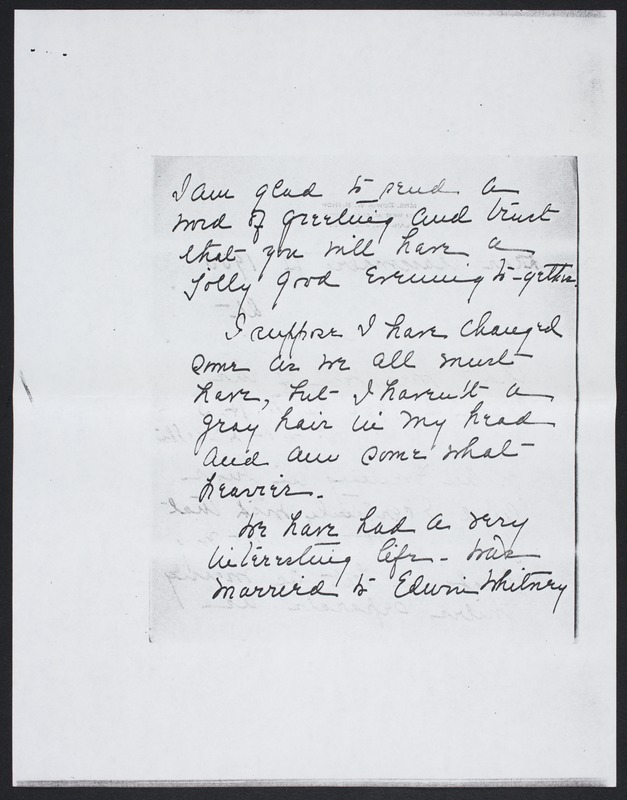 I am glad to send a
word of greeting and trust
that you will have a
Jolly good Evening to-gether.
I suppose I have changed
some as we all must
have, but I haven't a
gray hair in my head
and am some what
heavier.
We have had a very
interesting life - was
married to Edwin Whitney